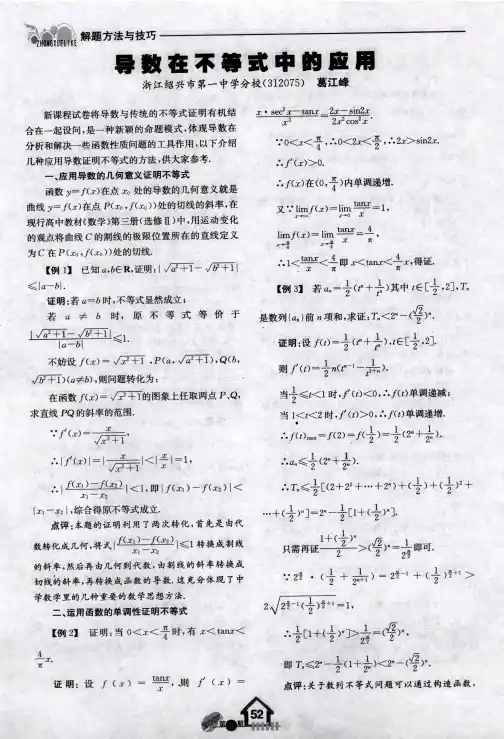 ZHONGXUELIKE 解题方法与技巧
导数在不等式中的应用
浙江绍兴市第一中学分校(312075) 葛江峰
新课程试卷将导数与传统的不等式证明有机结
合在一起设问,是一种新颖的命题模式,体现导数在
分析和解决一些函数性质问题的工具作用,以下介绍
几种应用导数证明不等式的方法,供大家参考.
一、应用导数的几何意义证明不等式
函数 y=f(x)在点 x₀ 处的导数的几何意义就是
曲线 y=f(x)在点 P(x₀,f(x₀))处的切线的斜率,在
现行高中教材《数学》第三册(选修Ⅱ)中,用运动变化
的观点将曲线 C 的割线的极限位置所在的直线定义
为 C 在 P(x₀,f(x₀))处的切线.
【例 1】 已知 a,b∈R,证明:|√(a²+1)-√(b²+1)|
≤|a-b|.
证明:若 a=b 时,不等式显然成立;
若 a ≠ b 时, 原不等式等价于
|√(a²+1)-√(b²+1)|/|a-b|≤1.
不妨设 f(x)=√(x²+1),P(a,√(a²+1)),Q(b,
√(b²+1))(a≠b),则问题转化为:
在函数 f(x)=√(x²+1)的图象上任取两点 P、Q,
求直线 PQ 的斜率的范围.
∵f′(x)=x/√(x²+1),
∴|f′(x)|=|x/√(x²+1)|<|x/x|=1,
∴|(f(x₁)-f(x₂))/(x₁-x₂)|<1,即|f(x₁)-f(x₂)|<
|x₁-x₂|,综合得原不等式成立.
点评:本题的证明利用了两次转化,首先是由代
数转化成几何,将式|(f(x₁)-f(x₂))/(x₁-x₂)|≤1 转换成割线
的斜率,然后再由几何到代数,由割线的斜率转换成
切线的斜率,再转换成函数的导数.这充分体现了中
学数学里的几种重要的数学思想方法.
二、运用函数的单调性证明不等式
【例 2】 证明:当 0<x<π/4 时,有 x<tanx<
4/π x.
证明:设 f(x)=tanx/x,则 f′(x)=
(x·sec²x-tanx)/x²=(2x-sin2x)/(2x²cos²x).
∵0<x<π/4,∴0<2x<π/2,∴2x>sin2x.
∴f′(x)>0.
∴f(x)在(0,π/4)内单调递增.
又∵lim(x→0) f(x)=lim(x→0) tanx/x=1,
lim(x→π/4) f(x)=lim(x→π/4) tanx/x=4/π,
∴1<tanx/x<4/π即 x<tanx<4/π x,得证.
【例 3】 若 aₙ=1/2(tⁿ+1/tⁿ)其中 t∈[1/2,2],Tₙ
是数列{aₙ}前 n 项和,求证:Tₙ<2ⁿ-(√2/2)ⁿ.
证明:设 f(t)=1/2(tⁿ+1/tⁿ),t∈[1/2,2].
则 f′(t)=1/2 n(tⁿ⁻¹-1/t¹⁺ⁿ),
当1/2≤t<1 时,f′(t)<0,∴f(t)单调递减;
当 1<t<2 时,f′(t)>0,∴f(t)单调递增.
∴f(t)max=f(2)=f(1/2)=1/2(2ⁿ+1/2ⁿ).
∴aₙ≤1/2(2ⁿ+1/2ⁿ).
∴Tₙ≤1/2[(2+2²+…+2ⁿ)+(1/2)+(1/2)²+
…+(1/2)ⁿ]=2ⁿ-1/2[1+(1/2)ⁿ].
只需再证(1+(1/2)ⁿ)/2>(√2/2)ⁿ=1/2^(n/2)即可.
∵2^(n/2)·(1/2+1/2ⁿ⁺¹)=2^(n/2-1)+(1/2)^(n/2+1)>
2√(2^(n/2-1)(1/2)^(n/2+1))=1,
∴1/2[1+(1/2)ⁿ]>1/2^(n/2)=(√2/2)ⁿ,
即 Tₙ≤2ⁿ-1/2(1+1/2ⁿ)<2ⁿ-(√2/2)ⁿ.
点评:关于数列不等式问题可以通过构造函数,
52